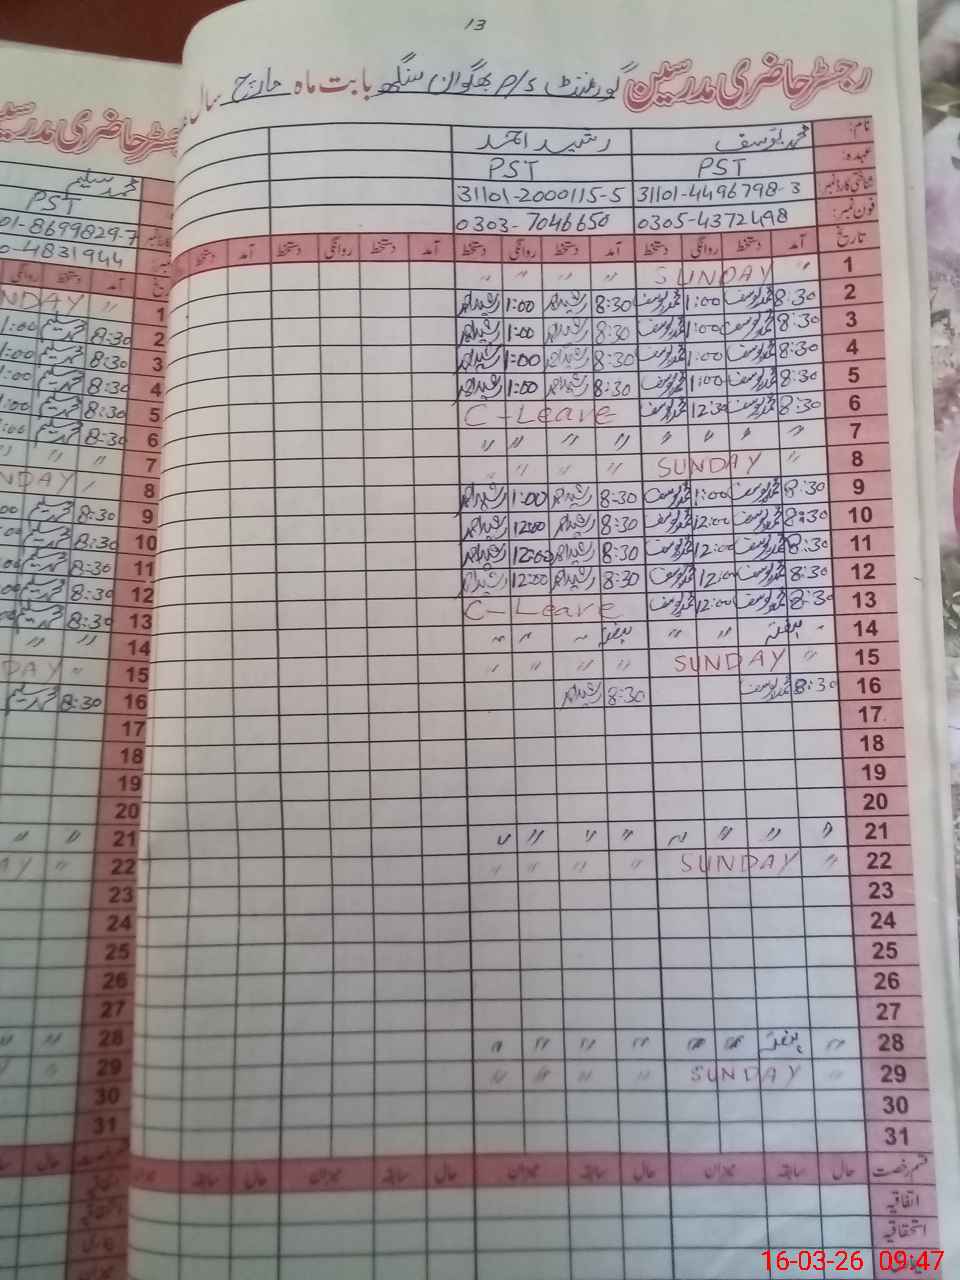 13
رجسٹر حاضری مدرسین گورنمنٹ P/S بھگوان سنگھ بابت ماہ مارچ سال
نام: محمد یوسف رشید احمد
عہدہ: PST PST
شناختی کارڈ نمبر: 31101-4496798-3 31101-2000115-5
فون نمبر: 0305-4372498 0303-7046650
تاریخ آمد دستخط روانگی دستخط آمد دستخط روانگی دستخط آمد دستخط روانگی دستخط آمد دستخط
1 " SUNDAY " " " "
2 8:30 محمد یوسف 1:00 محمد یوسف 8:30 رشید احمد 1:00 رشید احمد
3 8:30 محمد یوسف 1:00 محمد یوسف 8:30 رشید احمد 1:00 رشید احمد
4 8:30 محمد یوسف 1:00 محمد یوسف 8:30 رشید احمد 1:00 رشید احمد
5 8:30 محمد یوسف 1:00 محمد یوسف 8:30 رشید احمد 1:00 رشید احمد
6 8:30 محمد یوسف 12:30 محمد یوسف C-Leave
7 " " " " " " " "
8 " SUNDAY " " " "
9 8:30 محمد یوسف 1:00 محمد یوسف 8:30 رشید احمد 1:00 رشید احمد
10 8:30 محمد یوسف 12:00 محمد یوسف 8:30 رشید احمد 12:00 رشید احمد
11 8:30 محمد یوسف 12:00 محمد یوسف 8:30 رشید احمد 12:00 رشید احمد
12 8:30 محمد یوسف 12:00 محمد یوسف 8:30 رشید احمد 12:00 رشید احمد
13 8:30 محمد یوسف 12:00 محمد یوسف C-Leave
14 " ہفتہ " " ہفتہ " " "
15 " SUNDAY " " " "
16 8:30 محمد یوسف 8:30 رشید احمد
17
18
19
20
21 " " " " " " " "
22 " SUNDAY " " " "
23
24
25
26
27
28 " ہفتہ " " " " " "
29 " SUNDAY " " " "
30
31
قسم رخصت حال سابقہ میزان حال سابقہ میزان حال سابقہ میزان حال سابقہ
اتفاقیہ
استحقاقیہ
رجسٹر حاضری مدرسین
محمد سلیم
PST
01-8699829-7
0-4831944
آمد دستخط روانگی
1 " NDAY
2 8:30 محمد سلیم 1:00
3 8:30 محمد سلیم 1:00
4 8:30 محمد سلیم 1:00
5 8:30 محمد سلیم 1:00
6 8:30 محمد سلیم :00
7 " " "
8 " NDAY
9 8:30 محمد سلیم 00
10 8:30 محمد سلیم
11 8:30 محمد سلیم
12 8:30 محمد سلیم
13 8:30 محمد سلیم
14 " "
15 " DAY
16 8:30 محمد سلیم
17
18
19
20
21 " "
22 " AY
23
24
25
26
27
28 " "
29 " Y
30
31
حال سابقہ
16-03-26 09:47